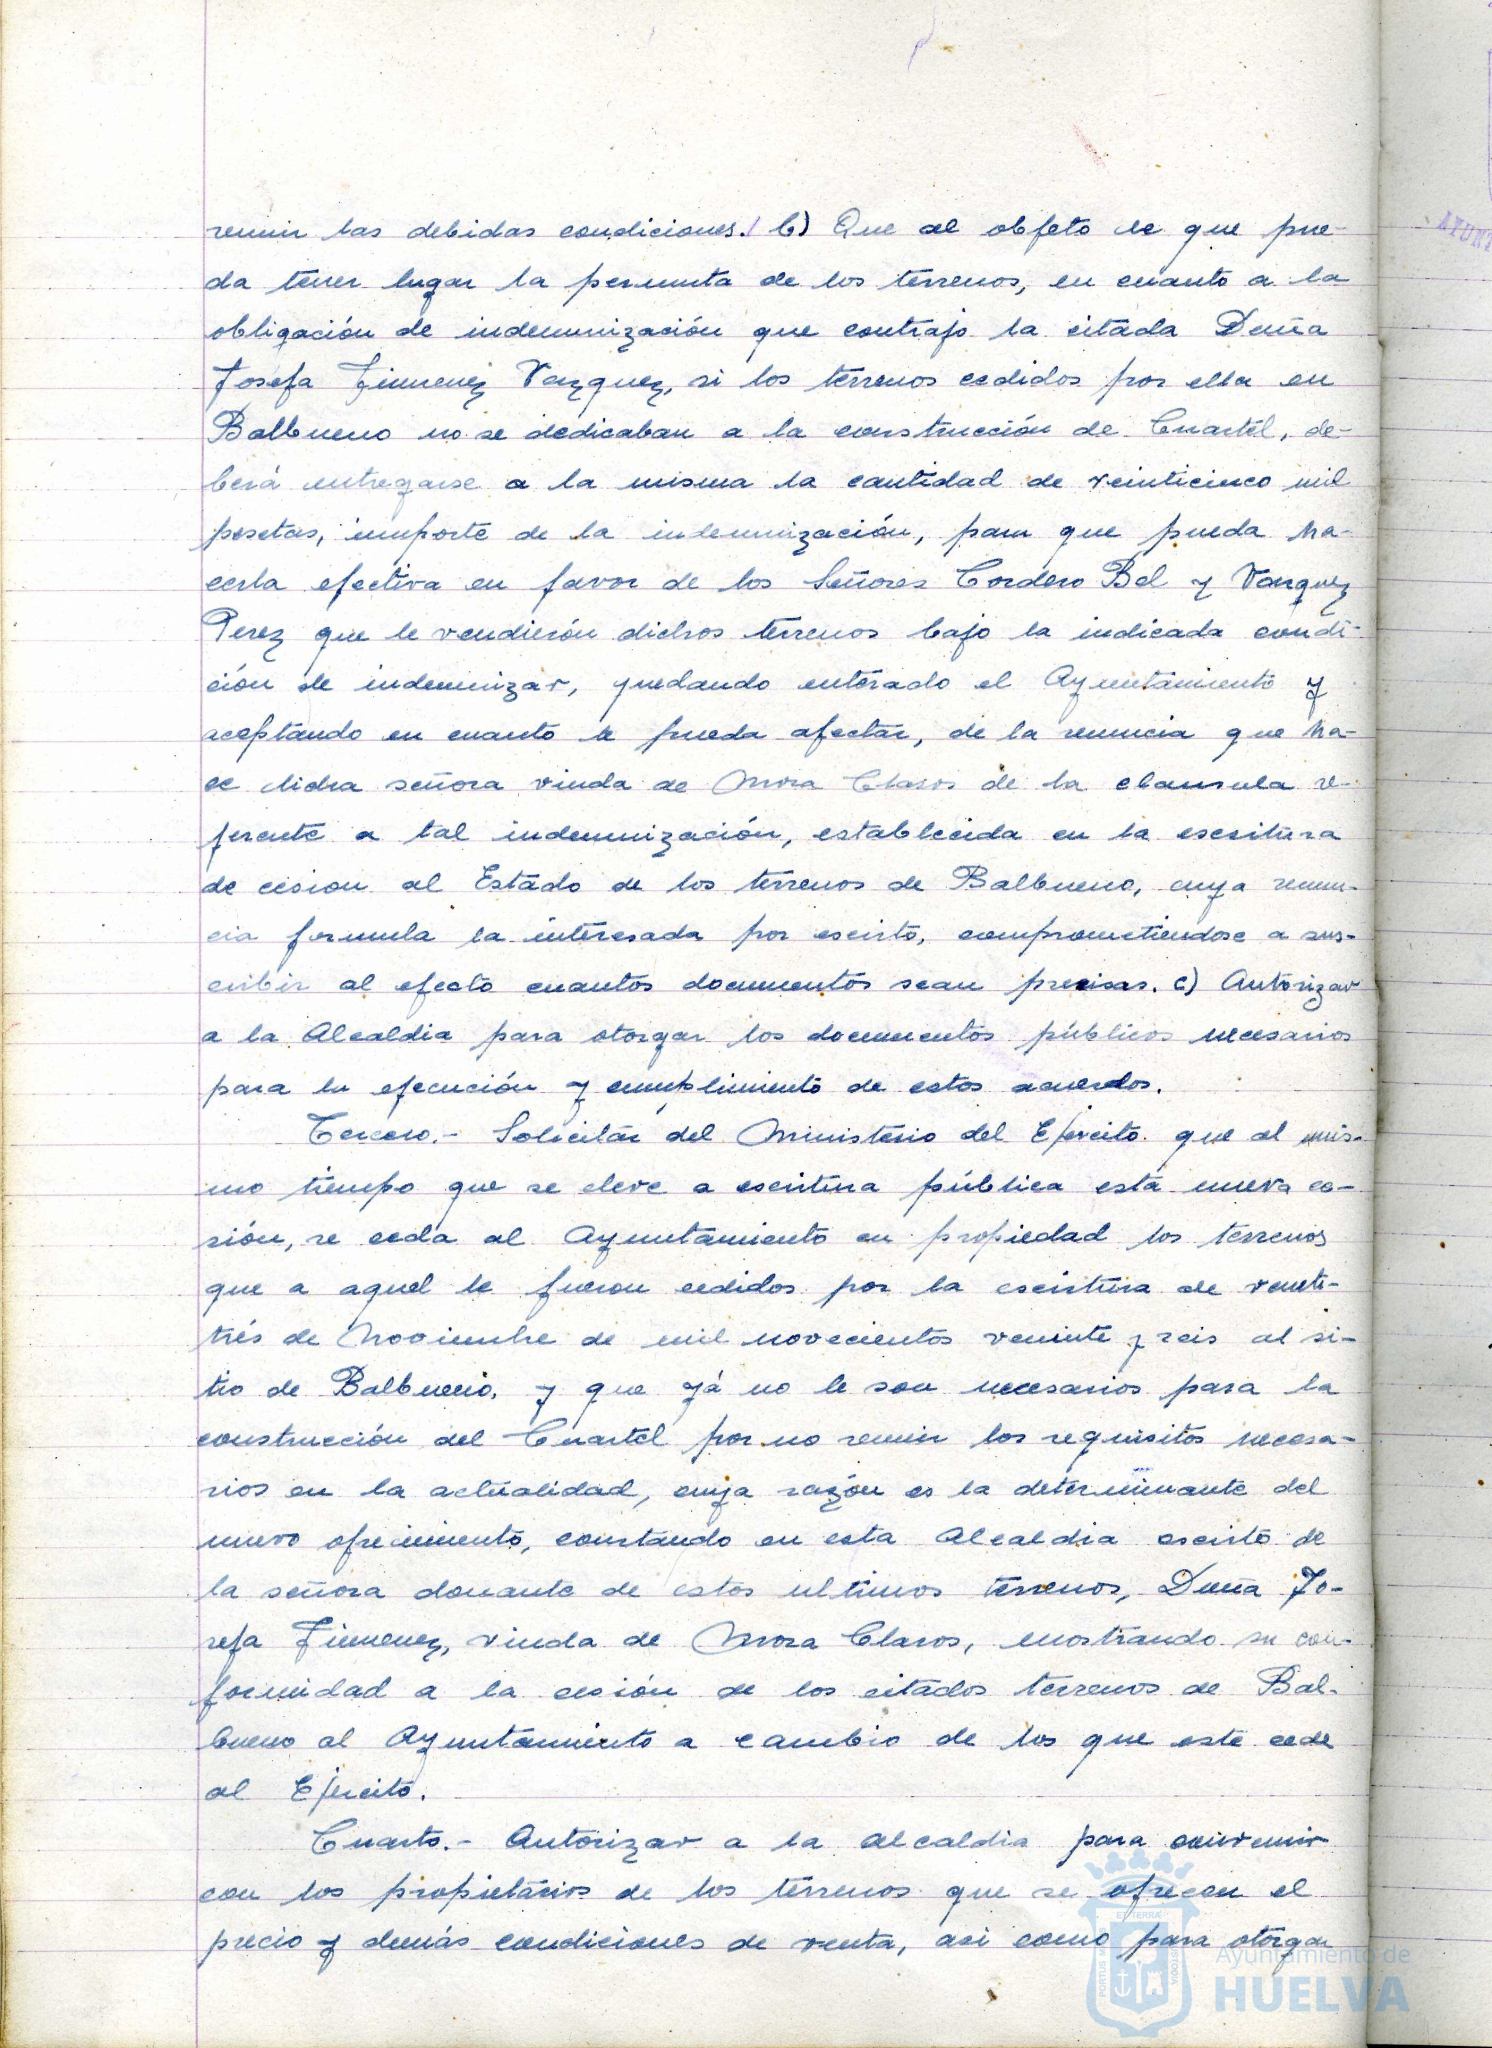 reunir las debidas condiciones. b) Que al objeto de que pue-
da tener lugar la permuta de los terrenos, en cuanto a la
obligación de indemnización que contrajo la citada Doña
Josefa Jimenez Vazquez, si los terrenos cedidos por ella en
Balbueno no se dedicaban a la construcción de Cuartel, de-
berá entregarse a la misma la cantidad de veinticinco mil
pesetas, importe de la indemnización, para que pueda ha-
cerla efectiva en favor de los Señores Cordero Bel y Vazquez
Perez que le vendierón dichos terrenos bajo la indicada condi-
ción de indemnizar, quedando enterado el Ayuntamiento y
aceptando en cuanto le pueda afectar, de la renuncia que ha-
ce dicha señora viuda de Mora Claros de la clausula re-
ferente a tal indemnización, establecida en la escritura
de cesion al Estado de los terrenos de Balbueno, cuya renun-
cia formula la interesada por escrito, comprometiendose a sus-
cribir al efecto cuantos documentos sean precisas. c) Autorizar
a la Alcaldia para otorgar los documentos públicos necesarios
para la ejecución y cumplimiento de estos acuerdos.
Tercero.- Solicitar del Ministerio del Ejército que al mis-
mo tiempo que se eleve a escritura pública esta nueva ce-
sión, se ceda al Ayuntamiento en propiedad los terrenos
que a aquel le fueron cedidos por la escritura de venti-
trés de Noviembre de mil novecientos veninte y seis al si-
tio de Balbueno, y que yá no le son necesarios para la
construcción del Cuartel por no reunir los requisitos necesa-
rios en la actualidad, cuya razón es la determinante del
nuevo ofrecimiento, constando en esta Alcaldia escrito de
la señora donante de estos ultimos terrenos, Doña Jo-
sefa Jimenez, viuda de Mora Claros, mostrando su con-
formidad a la cesión de los citados terrenos de Bal-
bueno al Ayuntamiento a cambio de los que este cede
al Ejército.
Cuarto.- Autorizar a la alcaldia para convenir
con los propietarios de los terrenos que se ofrecen el
precio y demás condiciones de venta, asi como para otorgar
Ayuntamiento de
HUELVA